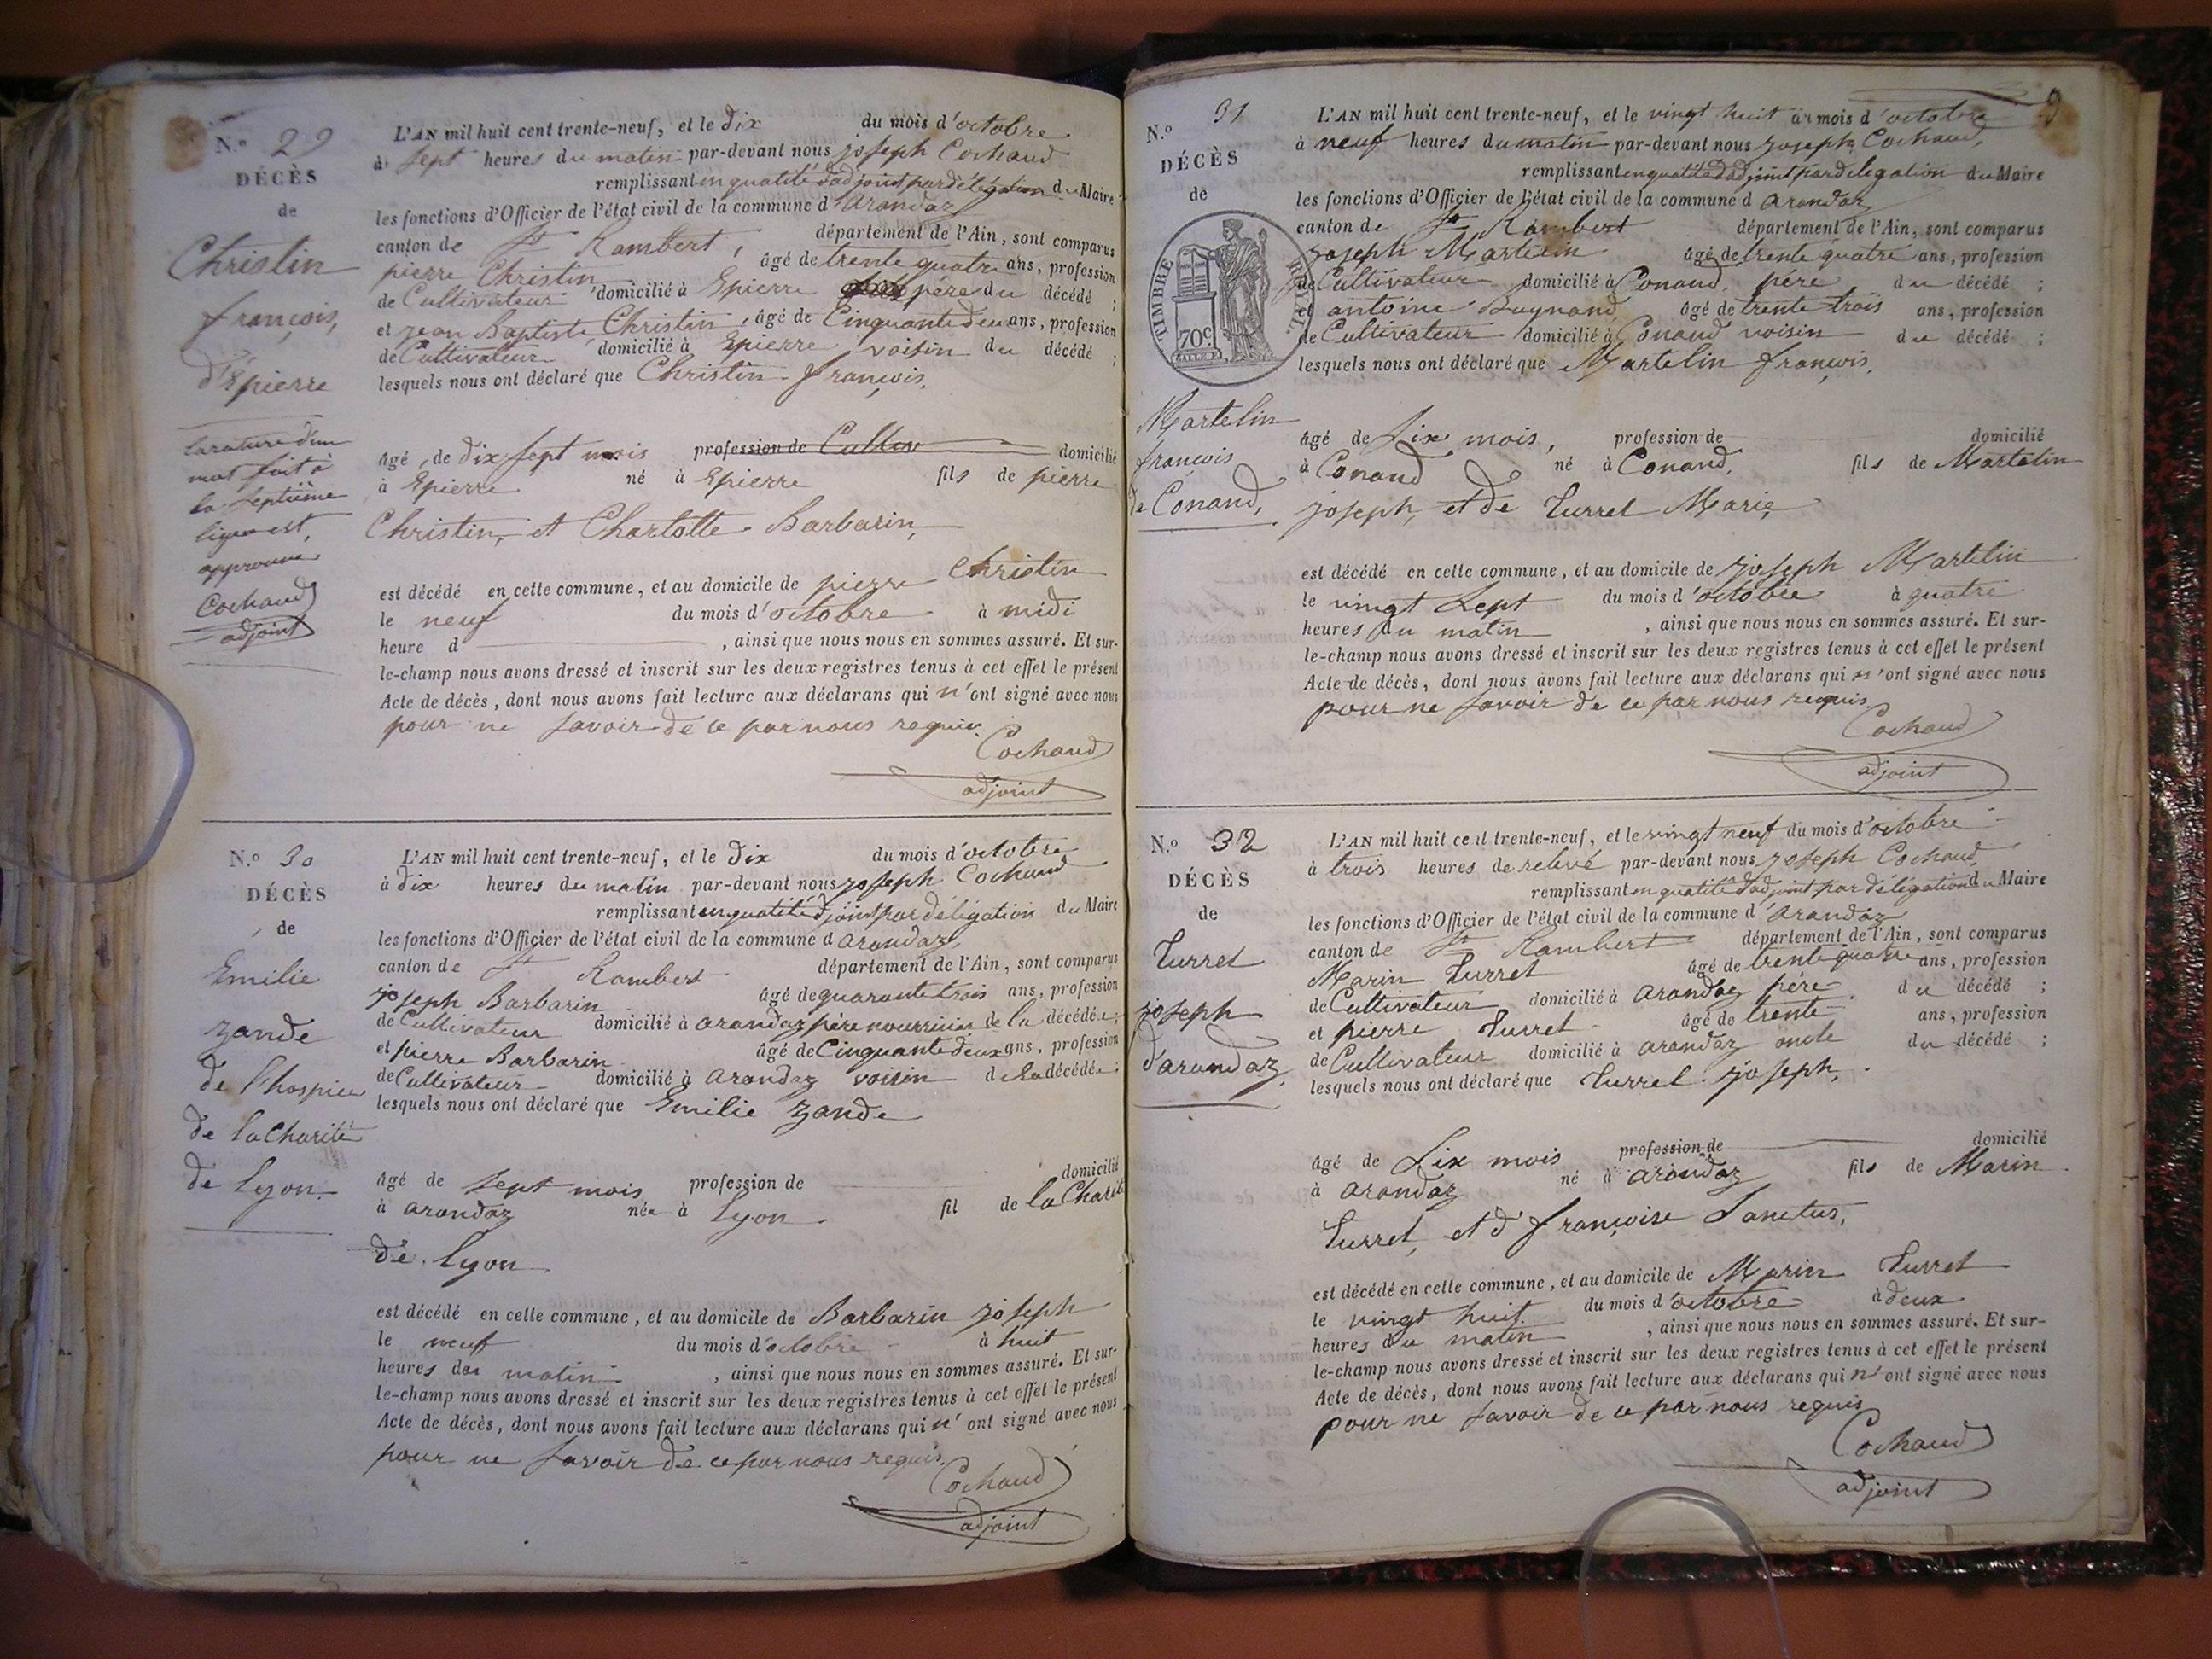 N.º 29
DÉCÈS
de
Christin
françois,
d'Epierre
larature d'un
mot fait à
la septième
ligne est,
approuvé
Cochaud
adjoint
L'AN mil huit cent trente-neuf, et le dix du mois d'octobre
à sept heures du matin par-devant nous joseph Cochaud
remplissant en qualité d'adjoint par délégation du Maire
les fonctions d'Officier de l'état civil de la commune d'arandaz
canton de St Rambert, département de l'Ain, sont comparus
pierre Christin âgé de trente quatre ans, profession
de Cultivateur domicilié à Epierre père du décédé ;
et jean Baptiste Christin, âgé de Cinquante deux ans, profession
de Cultivateur domicilié à Epierre voisin du décédé ;
lesquels nous ont déclaré que Christin françois,
âgé de dix sept mois profession de Cultiv domicilié
à Epierre né à Epierre fils de pierre
Christin, et Charlotte Barbarin,
est décédé en cette commune, et au domicile de pierre Christin
le neuf du mois d'octobre à midi
heure d , ainsi que nous nous en sommes assuré. Et sur-
le-champ nous avons dressé et inscrit sur les deux registres tenus à cet effet le présent
Acte de décès, dont nous avons fait lecture aux déclarans qui n'ont signé avec nous
pour ne savoir de ce par nous requis.
Cochaud
adjoint
N.º 30
DÉCÈS
de
Emilie
zande
de l'hospice
de la Charité
de Lyon
L'AN mil huit cent trente-neuf, et le dix du mois d'octobre
à dix heures du matin par-devant nous joseph Cochaud
remplissant en qualité djoint par délégation du Maire
les fonctions d'Officier de l'état civil de la commune d arandaz
canton de St Rambert département de l'Ain, sont comparus
joseph Barbarin âgé de quarante trois ans, profession
de Cultivateur domicilié à arandaz père nourricier de la décédée ;
et pierre Barbarin âgé de Cinquante deux ans, profession
de Cultivateur domicilié à arandaz voisin de la décédée ;
lesquels nous ont déclaré que Emilie zande
âgé de sept mois profession de domicilié
à arandaz née à Lyon fil de la Charité
de Lyon
est décédé en cette commune, et au domicile de Barbarin joseph
le neuf du mois d'octobre à huit
heures du matin , ainsi que nous nous en sommes assuré. Et sur-
le-champ nous avons dressé et inscrit sur les deux registres tenus à cet effet le présent
Acte de décès, dont nous avons fait lecture aux déclarans qui n'ont signé avec nous
pour ne savoir de ce par nous requis.
Cochaud
adjoint
9
N.º 31
DÉCÈS
de
TIMBRE ROYAL.
70c
Martelin
françois
de Conand,
L'AN mil huit cent trente-neuf, et le vingt huit du mois d'octobre
à neuf heures du matin par-devant nous joseph Cochaud,
remplissant en qualité d'adjoint par délégation du Maire
les fonctions d'Officier de l'état civil de la commune d arandaz
canton de St Rambert département de l'Ain, sont comparus
joseph Martelin âgé de trente quatre ans, profession
de Cultivateur domicilié à Conand, père du décédé ;
et antoine Buynand âgé de trente trois ans, profession
de Cultivateur domicilié à Conand voisin du décédé ;
lesquels nous ont déclaré que Martelin françois,
âgé de six mois, profession de domicilié
à Conand né à Conand, fils de Martelin
joseph, et de Turrel Marie,
est décédé en cette commune, et au domicile de joseph Martelin
le vingt sept du mois d'octobre à quatre
heures du matin , ainsi que nous nous en sommes assuré. Et sur-
le-champ nous avons dressé et inscrit sur les deux registres tenus à cet effet le présent
Acte de décès, dont nous avons fait lecture aux déclarans qui n'ont signé avec nous
pour ne savoir de ce par nous requis
Cochaud
adjoint
N.º 32
DÉCÈS
de
Turrel
joseph
d'arandaz,
L'AN mil huit cent trente-neuf, et le vingt neuf du mois d'octobre
à trois heures de relevé par-devant nous joseph Cochaud,
remplissant en qualité d'adjoint par délégation du Maire
les fonctions d'Officier de l'état civil de la commune d'arandaz
canton de St Rambert département de l'Ain, sont comparus
Marin Turrel âgé de trente quatre ans, profession
de Cultivateur domicilié à arandaz père du décédé ;
et pierre Turrel âgé de trente ans, profession
de Cultivateur domicilié à arandaz oncle du décédé ;
lesquels nous ont déclaré que Turrel joseph,
âgé de six mois profession de domicilié
à arandaz né à arandaz fils de Marin
Turrel, et d'françoise Sanctus,
est décédé en cette commune, et au domicile de Marin Turrel
le vingt huit du mois d'octobre à deux
heures du matin , ainsi que nous nous en sommes assuré. Et sur-
le-champ nous avons dressé et inscrit sur les deux registres tenus à cet effet le présent
Acte de décès, dont nous avons fait lecture aux déclarans qui n'ont signé avec nous
pour ne savoir de ce par nous requis
Cochaud
adjoint